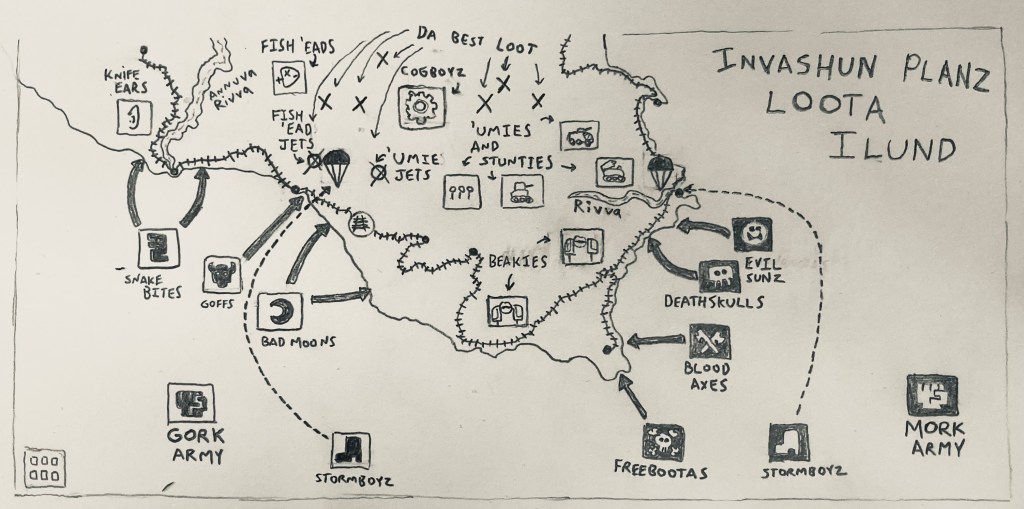 INVASHUN PLANZ
LOOTA
ILUND
DA BEST LOOT
FISH 'EADS
KNIFE
EARS
ANNUVA
RIVVA
COGBOYZ
FISH
'EAD
JETS
'UMIE
JETS
'UMIES
AND
STUNTIES
RIVVA
BEAKIES
SNAKE
BITES
GOFFS
BAD MOONS
EVIL
SUNZ
DEATHSKULLS
BLOOD
AXES
GORK
ARMY
MORK
ARMY
STORMBOYZ
FREEBOOTAS
STORMBOYZ